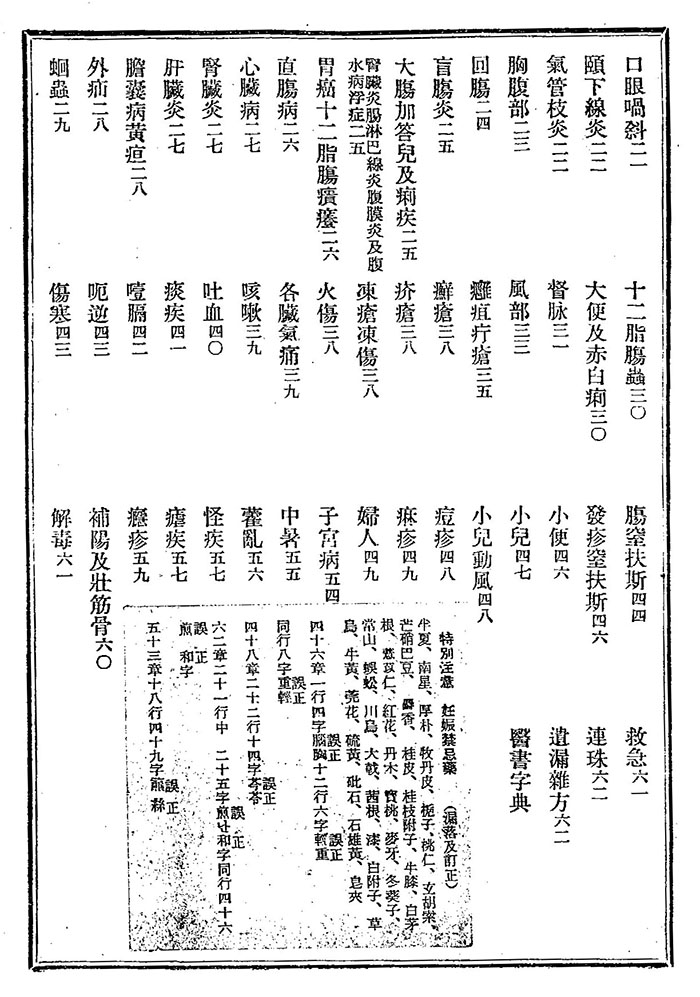 口眼喎斜二一
頤下線炎二二
氣管枝炎二二
胸腹部二三
回膓二四
盲膓炎二五
大膓加答兒及痢疾二五
腎臟炎膓淋巴線炎腹膜炎及腹
水病浮症二五
胃癌十二脂膓癀瘘二六
直膓病二六
心臟病二七
腎臟炎二七
肝臟炎二七
膽囊病黃疸二八
外疝二八
蛔蟲二九
十二脂膓蟲三〇
大便及赤白痢三〇
督脉三一
風部三三
癰疽疔瘡三五
癬瘡三八
疥瘡三八
凍瘡凍傷三八
火傷三八
各臟氣痛三九
咳嗽三九
吐血四〇
痰疾四一
噎膈四二
呃逆四三
傷寒四三
膓窒扶斯四四
發疹窒扶斯四六
小便四六
小兒四七
小兒動風四八
痘疹四八
麻疹四九
婦人四九
子宮病五四
中暑五五
藿亂五六
怪疾五七
瘧疾五七
癮疹五九
補陽及壯筋骨六〇
解毒六一
救急六一
連珠六二
遺漏雜方六二
醫書字典
特別注意 妊娠禁忌藥 (漏落及訂正)
半夏、南星、厚朴、牧丹皮、梔子、桃仁、玄胡索、
芒硝巴豆、麝香、桂皮、桂枝附子、牛膝、白茅
根、薏苡仁、紅花、丹木、寶桃、麥牙、冬葵子、
常山、蜈蚣、川烏、大戟、茜根、漆、白附子、草
烏、牛黃、莞花、硫黃、砒石、石雄黃、皂夾
誤正 誤正
四十六章一行四字腦胸十二行六字輕重
誤正
同行八字重輕
誤正
四十八章二十二行十四字芩苓
誤正
六二章二十一行中 二十五字煎난和字同行四十六
誤 正
煎 和字
誤正
五十三章十八行四十九字煎縣